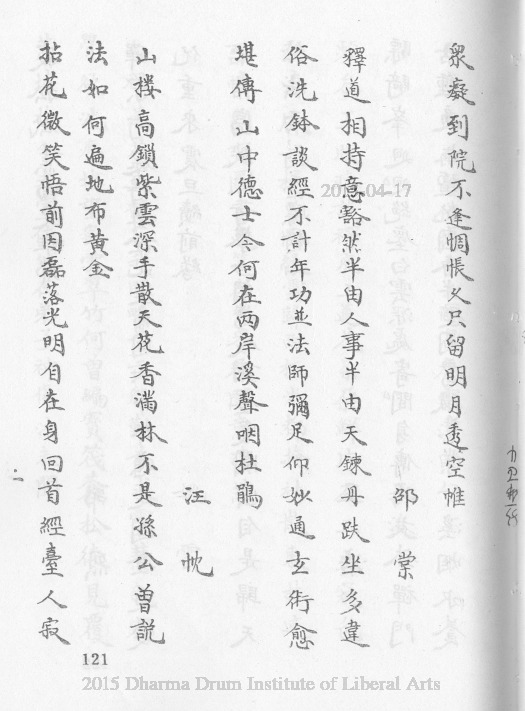 衆癡到院不逢惆悵久只留明月透空帷
邵棠
釋道相持意豁然半由人事半由天鍊丹趺坐多違
俗洗鉢談經不計年功並法師彌足仰妙通玄術愈
堪傳山中德士今何在兩岸溪聲咽杜鵑
汪忱
山樓高鎖紫雲深手散天花香滿林不是孫公曾說
法如何遍地布黃金
拈花微笑悟前因磊落光明自在身回首經臺人寂
121
2015-04-17
2015 Dharma Drum Institute of Liberal Arts